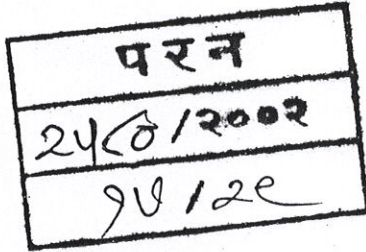 परन
२५८०/२००२
१७/२९